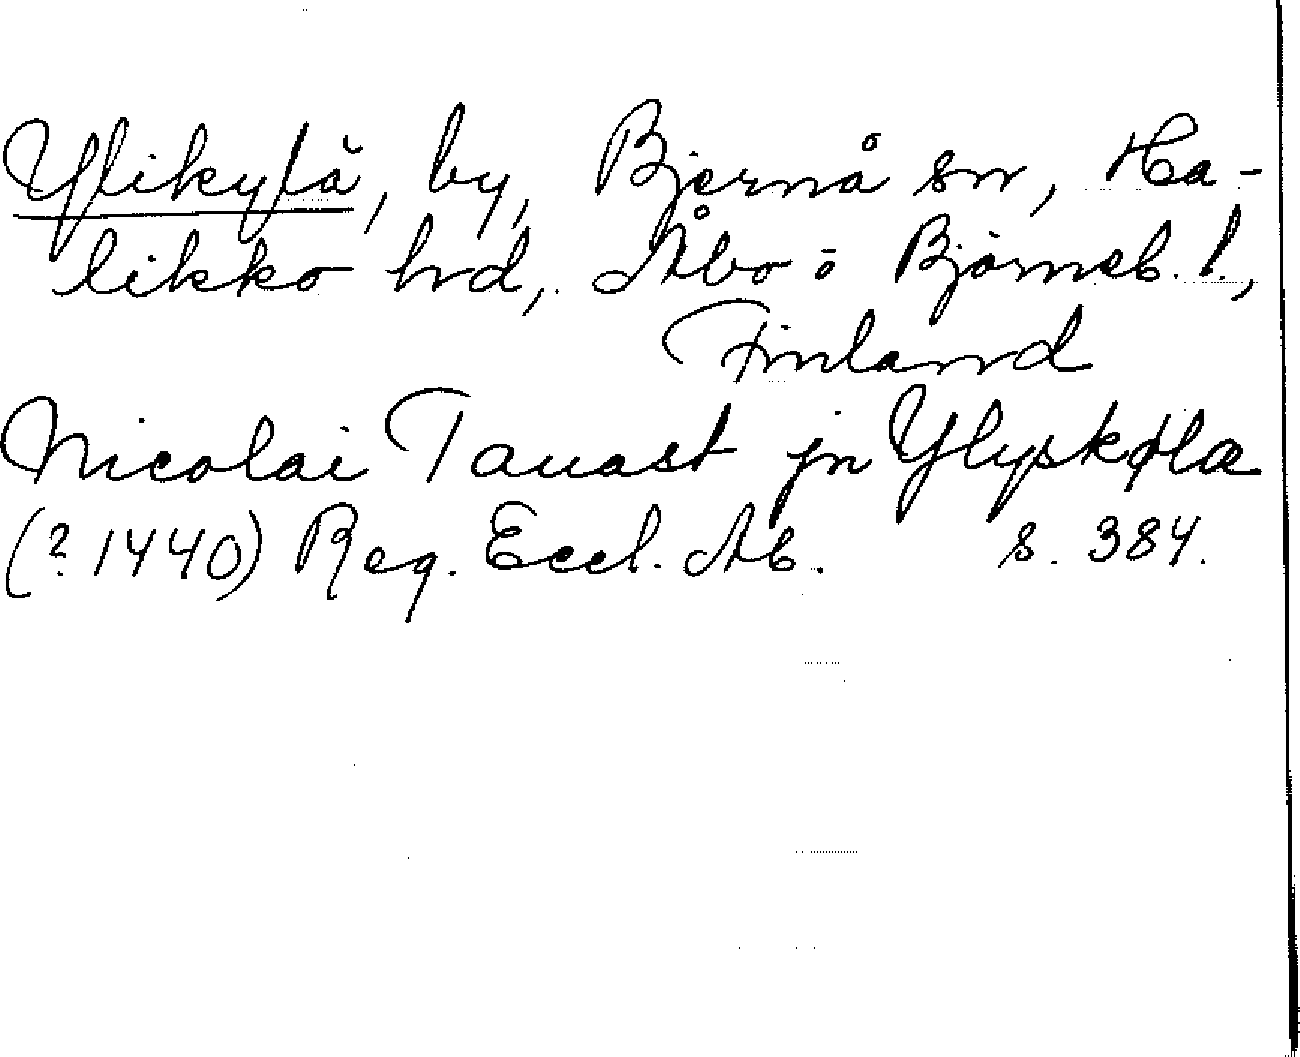 Ylikylä, by, Bjernå sn, Ha-
likko hd, Åbo o Björneb. l.,
Finland
Nicolai Tauast jn Ylyskøla
(? 1440) Reg. Eccl. Ab. s. 384.